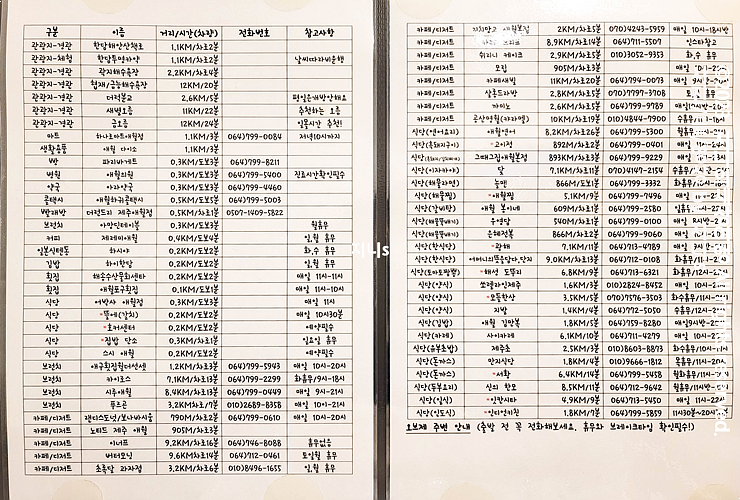 구분 이름 거리/시간(차량) 전화번호 참고사항
관광지-경관 한담해안산책로 1.1KM/차로2분
관광지-체험 한담투명카약 1.1KM/차로2분 날씨따라비운행
관광지-경관 곽지해수욕장 2.2KM/차로4분
관광지-경관 협재/금능해수욕장 12KM/20분
관광지-경관 더럭분교 2.6KM/5분 평일은개방안해요
관광지-경관 새별오름 11KM/22분 추천하는 오름
관광지-경관 금오름 12KM/24분 일몰시간 추천!
마트 하나로마트애월점 1.1KM/3분 064)799-0084 저녁10시까지
생활용품 애월 다이소 1.1KM/3분
빵 파리바게트 0.3KM/도보3분 064)799-8211
병원 애월의원 0.3KM/도보3분 064)799-5400 진료시간확인필수
약국 아라약국 0.3KM/도보3분 064)799-4460
콜택시 애월하귀콜택시 0.5KM/도보5분 064)799-5003
빨래방 더런드리 제주애월점 0.5KM/차로1분 0507-1409-5822
브런치 아망뜨테이블 0.3KM/도보3분 월휴무
커피 제레미애월 0.4KM/도보4분 일,월 휴무
일본식텐동 하시야 0.2KM/도보2분 화,수 휴무
김밥 하이한담 0.2KM/도보2분 일,월 휴무
횟집 해송수산물회센타 0.2KM/도보2분 매일 11시-11시
횟집 애월포구횟집 0.1KM/도보1분 매일 10시-10시
식당 어방사 애월점 0.3KM/도보3분 매일 11시
식당 *뜰에(갈치) 0.2KM/도보2분 매일 10시30분
식당 *호커센터 0.2KM/도보2분 예약필수
식당 *집밥 담소 0.3KM/차로1분 일요일 휴무
식당 스시 애월 0.2KM/도보2분 예약필수
브런치 애규횟집월터센셋 1.2KM/차로3분 064)799-5943 매일 10시-20시
브런치 카이로스 7.1KM/차로13분 064)799-2299 화휴무/9시-18시
브런치 시주애월 8.4KM/차로13분 064)799-0449 매일 9시-21시
브런치 푸르곤 3.2KM/차로/7분 010)2689-8358 매일 10시-21시
카페/디저트 랜디스도넛/보나바시움 790M/차로2분 064)799-0610 매일 10시-20시
카페/디저트 노티드 제주 애월 905M/차로3분
카페/디저트 이너프 9.2KM/차로16분 064)746-8088 휴무없음
카페/디저트 버터모닝 9.6KM/차로14분 064)712-0461 토일월 휴무
카페/디저트 초록달 과자점 3.2KM/차로5분 010)8496-1655 일,월 휴무
카페/디저트 지치맞고 애월본점 2KM/차로5분 070)4243-5959 매일 10시-18시반
카페/디저트 8.9KM/차로14분 064)711-5507 인스타참고
카페/디저트 쉬리니 케이크 2.9KM/차로5분 010)3052-9353 화,수 휴무
카페/디저트 모립 905M/차로3분 매일
카페/디저트 카페새빌 11KM/차로20분 064)794-0073 매일 9시
카페/디저트 살롱드라방 2.8KM/차로5분 070)7797-3708 휴무
카페/디저트 까미노 2.6KM/차로5분 064)799-9789 매일
카페/디저트 공산명월(카라멜) 10KM/차로19분 010)4844-7900 수휴무
식당(연어요리) 애월연어 8.2KM/차로26분 064)799-5300 월휴무
식당(흑돼지구이) *고이정 892M/차로2분 064)799-0401 매일 11시
식당 그때그집애월본점 893M/차로3분 064)799-9229 매일
식당(이자카야) 달 7.1KM/차로11분 070)4147-2154 수휴무
식당(해물라면) 놀맨 866M/도보1분 064)799-3332
식당(해물찜) *애월찜 5.1KM/9분 064)799-7496 매일
식당(갈비탕) 애월 본이네 609M/차로1분 064)799-2580
식당(해물뚝배기) 우영담 540M/차로1분 064)799-0100 매일 8시반
식당(해물뚝배기) 은혜전복 866M/차로2분 064)799-9060 매일
식당(한식당) *광해 7.1KM/11분 064)713-4789 매일
식당(한식당) 9.0KM/차로13분 064)712-0108 화휴무
식당(토마토짬뽕) *해성 도뚜리 6.8KM/9분 064)713-6321
식당(양식) 쏘랭라인제주 1.6KM/3분 010)2824-8452 매일 10시
식당(양식) *모들한상 3.5KM/5분 070)7576-3503 화수휴무/11시
식당(양식) 지밥 1.4KM/2분 064)772-5050 수휴무/12시
식당(김밥) 애월 김만복 1.8KM/7분 064)759-8280 매일9시반
식당(카레) 사이카레 6.1KM/10분 064)711-4279 매일 11시
식당(유부초밥) 제주초 2.5KM/3분 010)8603-8873 화수휴무/10시
식당(돈까스) 만지식당 1.8KM/4분 010)9666-1812 목휴무/11시
식당(돈까스) *서황 6.4KM/14분 064)799-5458 월화휴무/11시
식당(두부요리) 신의 한모 8.5KM/11분 064)712-9642 월휴무/11시반
식당(일식) *인칸시타 4.9KM/9분 064)713-5450 매일 11시
식당(인도식) *인디언키친 1.8KM/7분 064)799-5859 11시30분-20시
오브제 주변 안내 (출발 전 꼭 전화해보세요. 휴무와 브레이크타임 확인필수!)